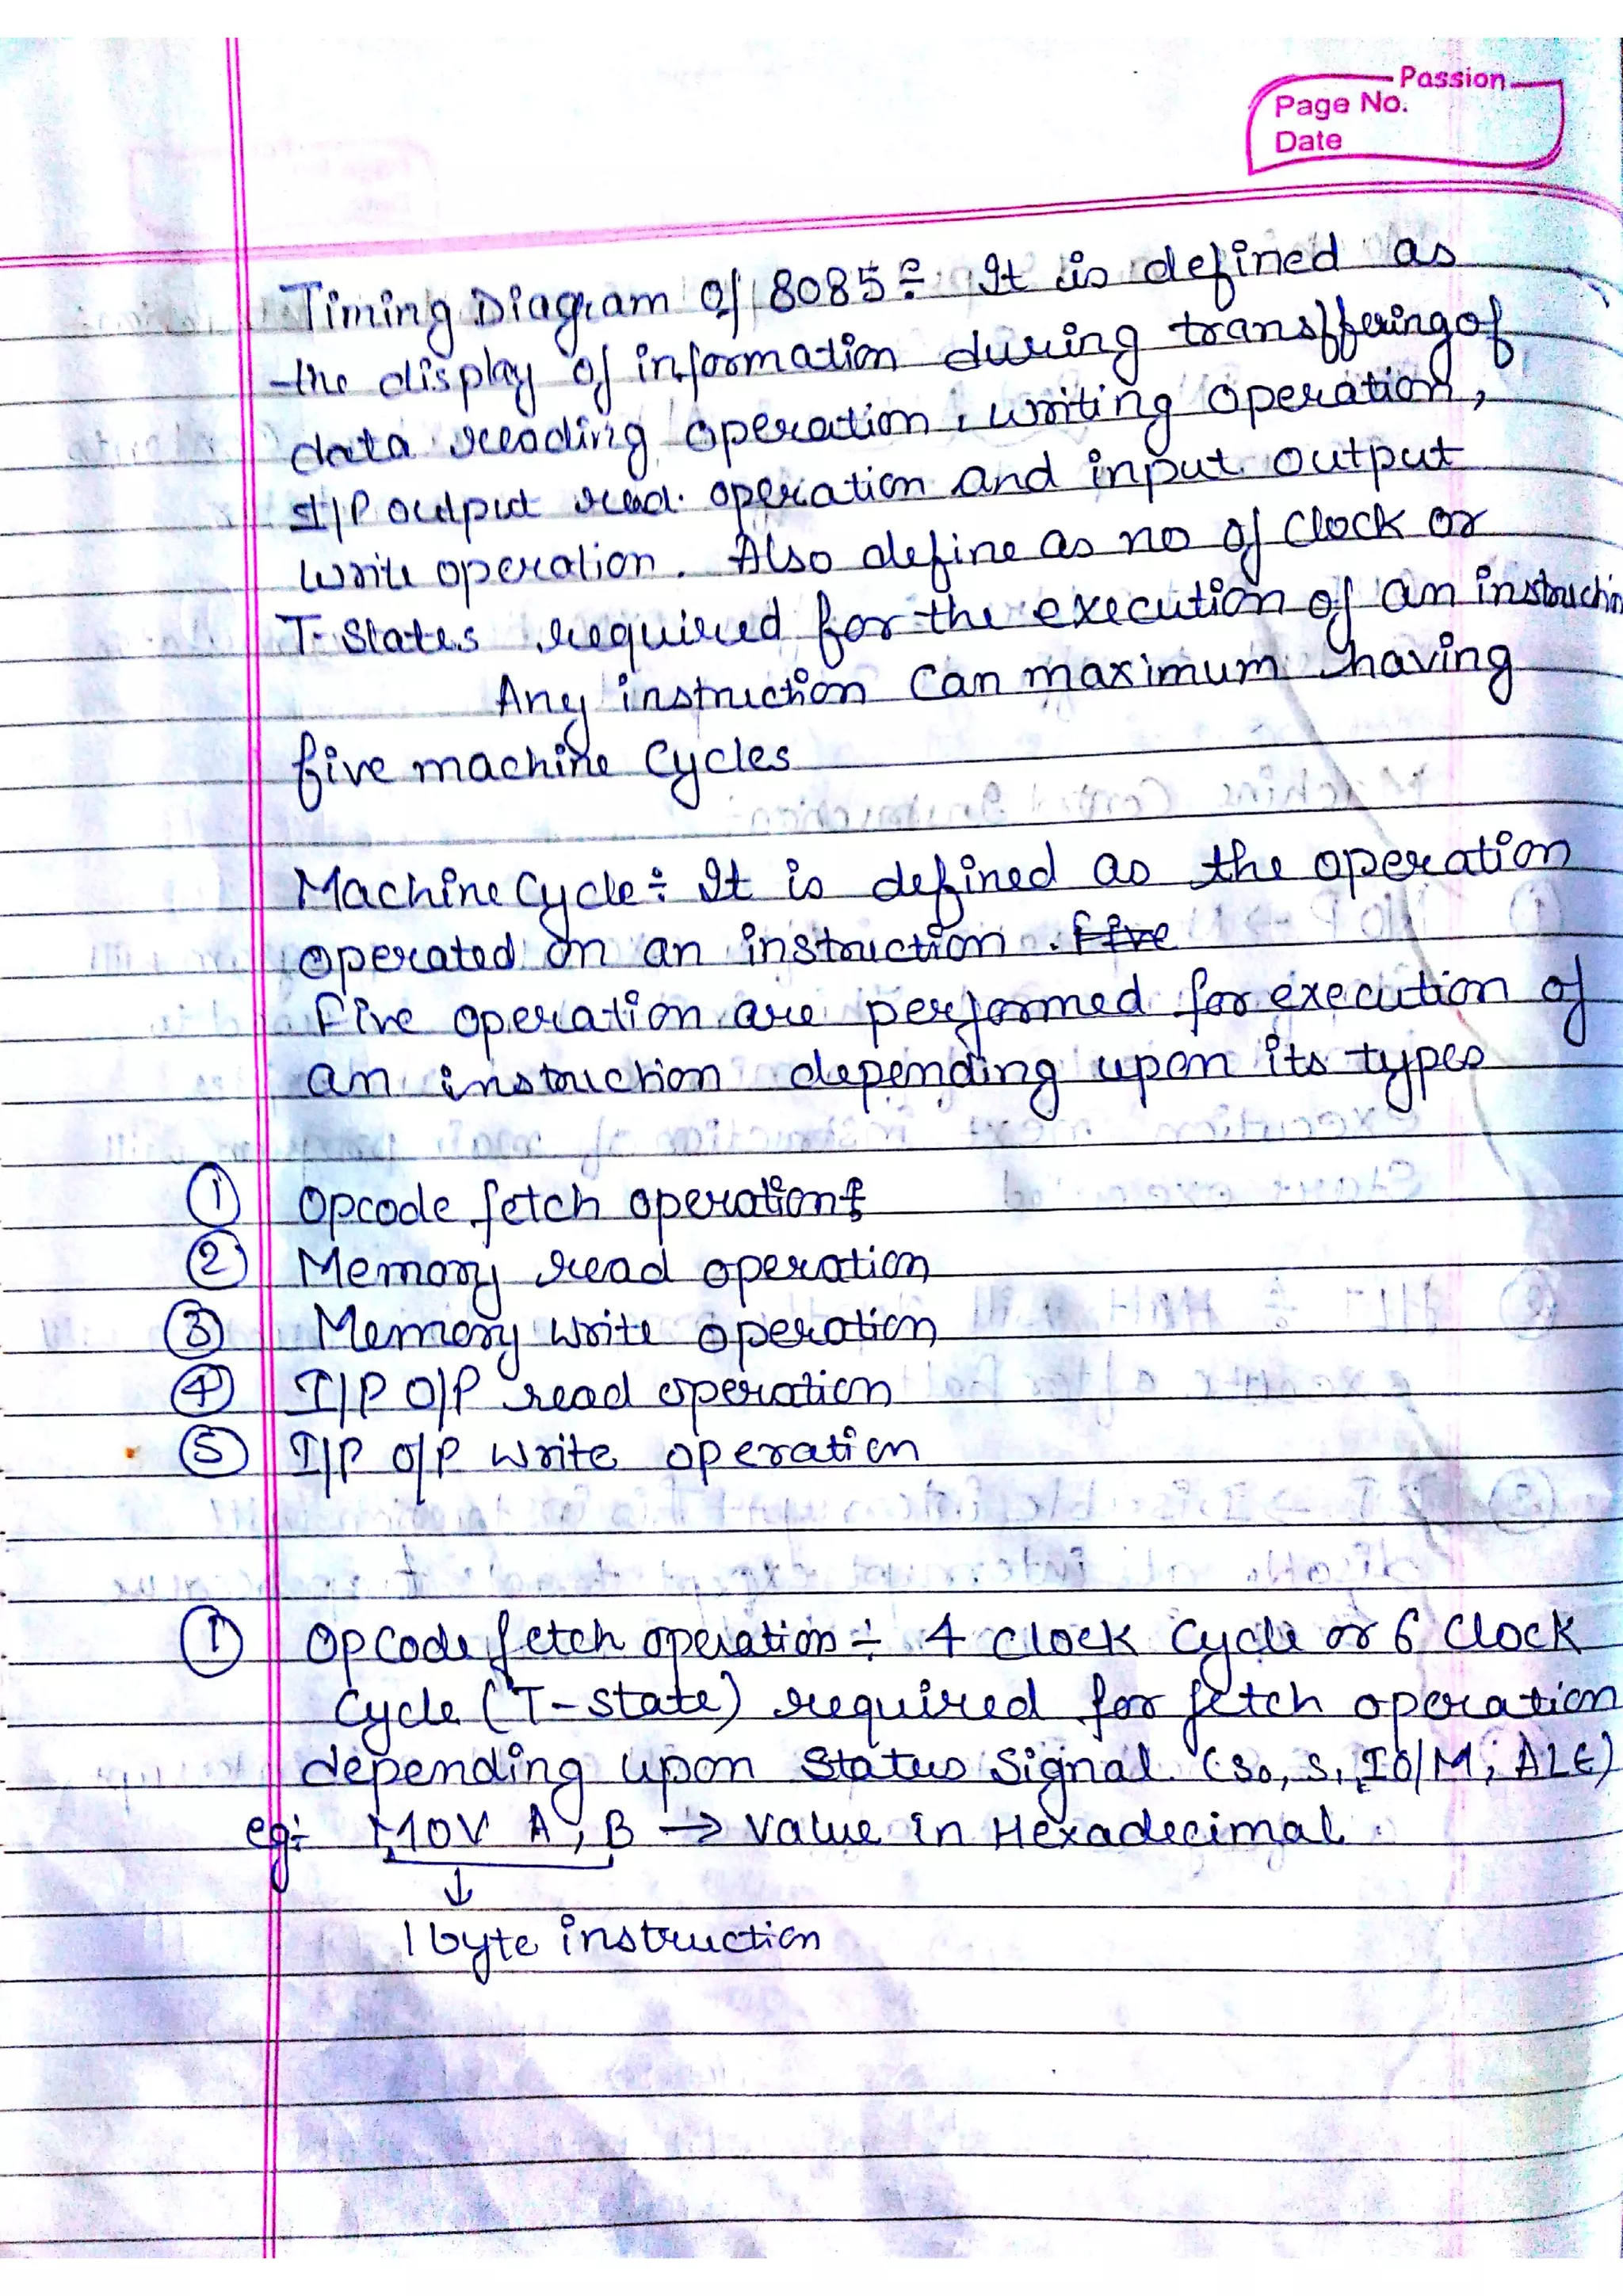 Passion
Page No.
Date
Timing Diagram of 8085 ÷ It is defined as
the display of information during transffering of
data reading operation, writing operation,
I/P output read operation and input output
write operation. Also define as no of Clock or
T-States required for the execution of an instruction
Any instruction Can maximum having
five machine Cycles
Machine Cycle ÷ It is defined as the operation
operated on an instruction. Five
Five operation are performed for execution of
an instruction depending upon its types
① Opcode fetch operation
② Memory read operation
③ Memory write operation
④ I/P O/P read operation
⑤ I/P O/P write operation
① Opcode fetch operation ÷ 4 Clock Cycle or 6 Clock
Cycle (T-state) required for fetch operation
depending upon Status Signal (S0, S1, IO/M, ALE)
eg÷ MOV A, B → Value in Hexadecimal.
↓
1 byte instruction